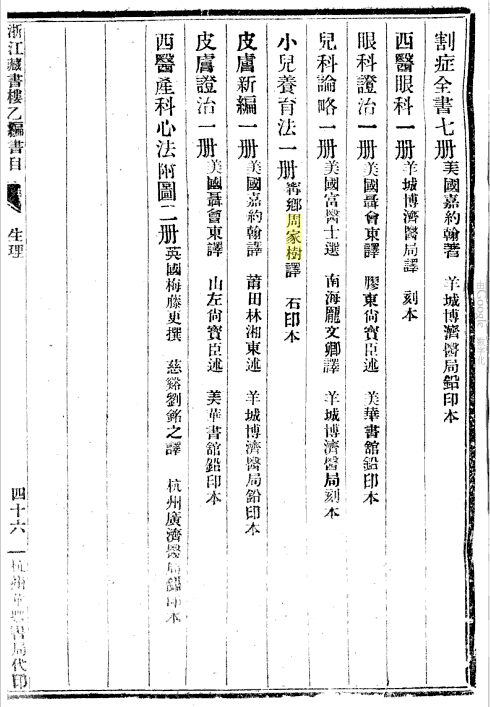 割症全書七册 美國嘉約翰著 羊城博濟醫局鉛印本
西醫眼科一册 羊城博濟醫局譯 刻本
眼科證治一册 美國聶會東譯 膠東尙寶臣述 美華書館鉛印本
兒科論略一册 美國富醫士選 南海龎文卿譯 羊城博濟醫局刻本
小兒養育法一册 甯鄉周家樹譯 石印本
皮膚新編一册 美國嘉約翰譯 莆田林湘東述 羊城博濟醫局鉛印本
皮膚證治一册 美國聶會東譯 山左尙寶臣述 美華書舘鉛印本
西醫產科心法附圖二册 英國梅藤更撰 慈谿劉銘之譯 杭州廣濟醫局鉛印本
浙江藏書樓乙編書目 生理 四十六 杭州華豐書局代印
由Google 數字化